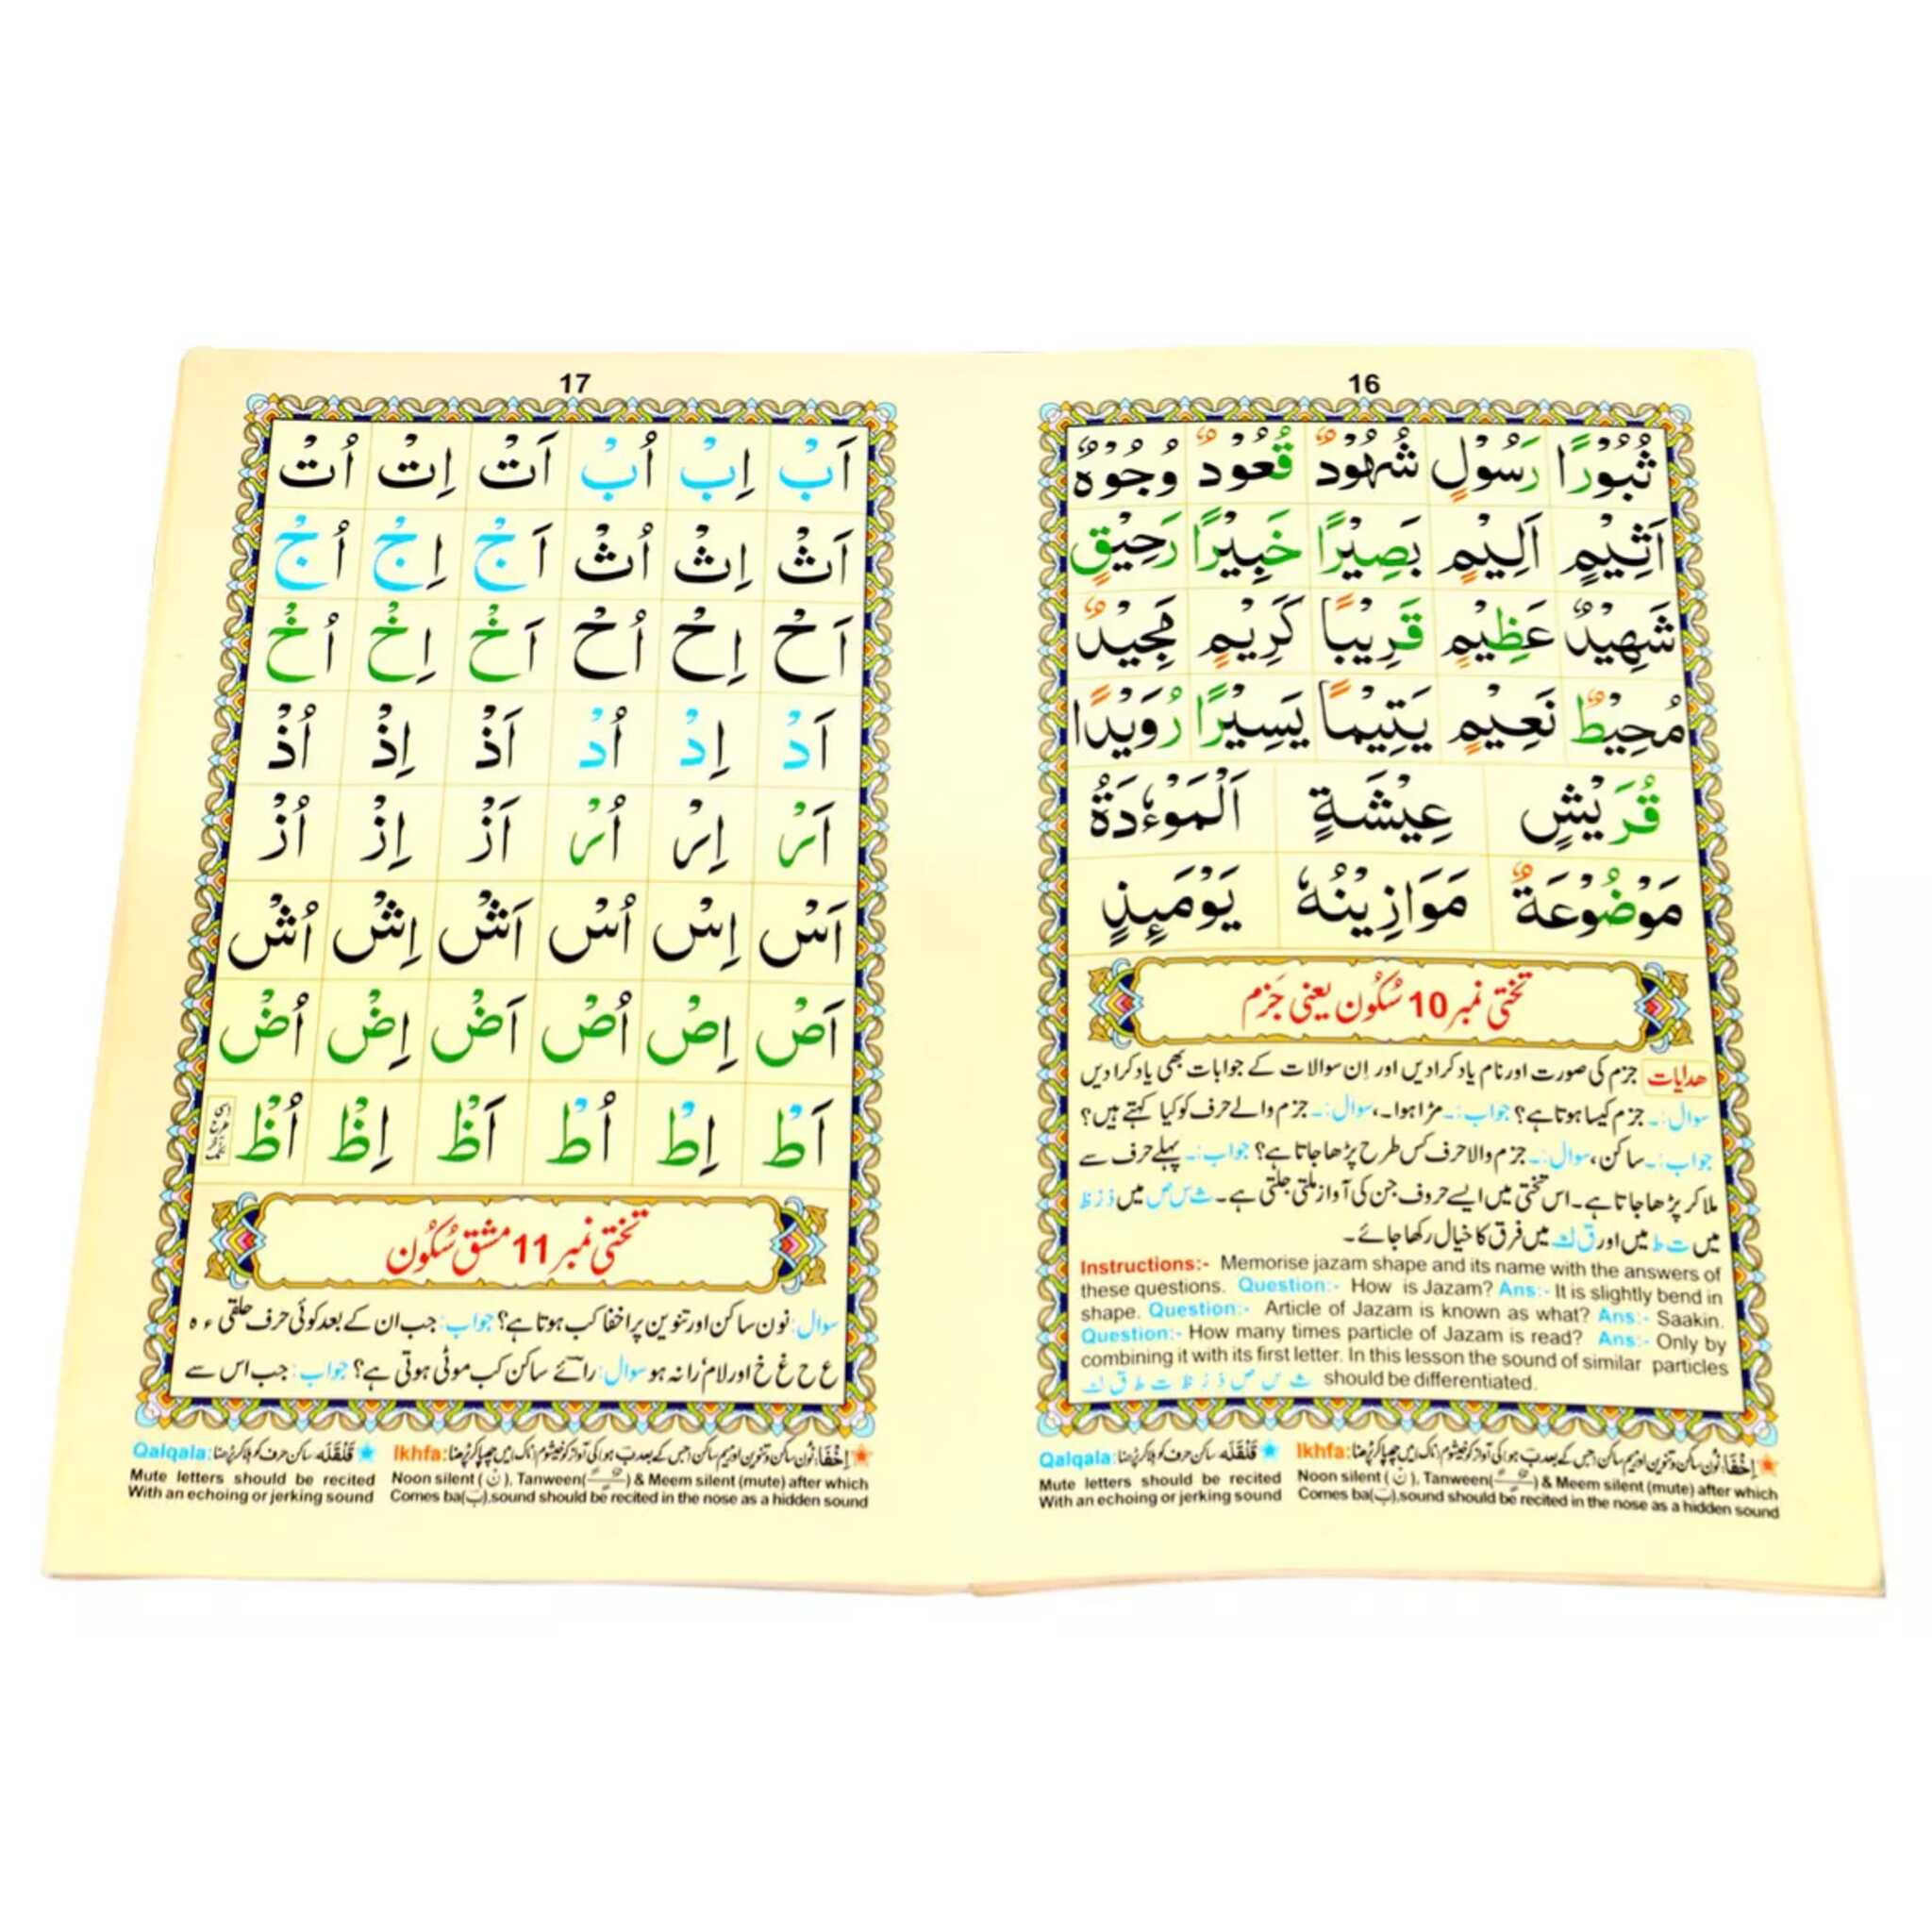 16
ثُبُوْرًا رَسُوْلٍ شُهُوْدٌ قُعُوْدٌ وُجُوْهٌ
اَثِيْمٍ اَلِيْمٍ بَصِيْرًا خَبِيْرًا رَحِيْقٍ
شَهِيْدٌ عَظِيْمٍ قَرِيْبًا كَرِيْمٍ مَجِيْدٌ
مُحِيْطٌ نَعِيْمٍ يَتِيْمًا يَسِيْرًا رُوَيْدًا
قُرَيْشٍ عِيْشَةٍ اَلْمَوْءٗدَةُ
مَوْضُوْعَةٌ مَوَازِيْنُهٗ يَوْمَئِذٍ
تختی نمبر 10 سُکُوْن یعنی جَزم
ھدایات جزم کی صورت اور نام یاد کرادیں اور اِن سوالات کے جوابات بھی یاد کرادیں
سوال:۔ جزم کیسا ہوتا ہے؟ جواب:۔ مڑا ہوا۔، سوال:۔ جزم والے حرف کو کیا کہتے ہیں؟
جواب:۔ ساکن، سوال:۔ جزم والا حرف کس طرح پڑھا جاتا ہے؟ جواب:۔ پہلے حرف سے
ملا کر پڑھا جاتا ہے۔ اس تختی میں ایسے حروف جن کی آواز ملتی جلتی ہے۔ ث س ص میں ذ ز ظ
میں ت ط میں اور ق ك میں فرق کا خیال رکھا جائے۔
Instructions:- Memorise jazam shape and its name with the answers of
these questions. Question:- How is Jazam? Ans:- It is slightly bend in
shape. Question:- Article of Jazam is known as what? Ans:- Saakin.
Question:- How many times particle of Jazam is read? Ans:- Only by
combining it with its first letter. In this lesson the sound of similar particles
ث س ص ذ ز ظ ت ط ق ك should be differentiated.
Qalqala: قَلْقَلَه ساکن حرف کو ہلا کر پڑھنا
Mute letters should be recited
With an echoing or jerking sound
Ikhfa: اِخْفَا نون ساکن و تنوین اور میم ساکن جس کے بعد ب ہو اسکی آواز کو خیشوم (ناک) میں چھپا کر پڑھنا
Noon silent (نْ), Tanween(ـًـٍـٌ) & Meem silent (mute) after which
Comes ba(ب),sound should be recited in the nose as a hidden sound
17
اَبْ اِبْ اُبْ اَتْ اِتْ اُتْ
اَثْ اِثْ اُثْ اَجْ اِجْ اُجْ
اَحْ اِحْ اُحْ اَخْ اِخْ اُخْ
اَدْ اِدْ اُدْ اَذْ اِذْ اُذْ
اَرْ اِرْ اُرْ اَزْ اِزْ اُزْ
اَسْ اِسْ اُسْ اَشْ اِشْ اُشْ
اَصْ اِصْ اُصْ اَضْ اِضْ اُضْ
اَطْ اِطْ اُطْ اَظْ اِظْ اُظْ
تختی نمبر 11 مشق سُکُوْن
سوال: نون ساکن اور تنوین پر اخفا کب ہوتا ہے؟ جواب: جب ان کے بعد کوئی حرف حلقی ء ہ
ع ح غ خ اور لام ٗ را نہ ہو سوال: رائے ساکن کب موٹی ہوتی ہے؟ جواب: جب اس سے
Qalqala: قَلْقَلَه ساکن حرف کو ہلا کر پڑھنا
Mute letters should be recited
With an echoing or jerking sound
Ikhfa: اِخْفَا نون ساکن و تنوین اور میم ساکن جس کے بعد ب ہو اسکی آواز کو خیشوم (ناک) میں چھپا کر پڑھنا
Noon silent (نْ), Tanween(ـًـٍـٌ) & Meem silent (mute) after which
Comes ba(ب),sound should be recited in the nose as a hidden sound